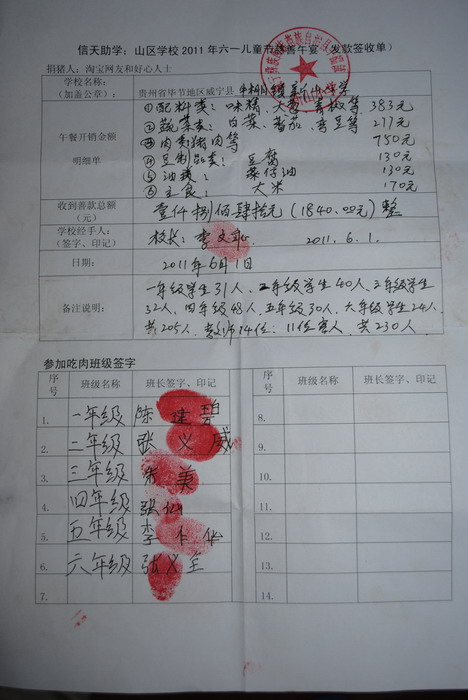 信天助学：山区学校2011年六一儿童节慈善午宴（发款签收单）
捐猪人：淘宝网友和好心人士
学校名称：
（加盖公章）：
贵州省毕节地区威宁县
午餐开销金额
明细单
①配料类：味精、大蒜、青椒等 383元
②蔬菜类：白菜、番茄、季豆等 277元
③肉类猪肉等 750元
④豆制品类：豆腐 130元
⑤油类：菜仔油 130元
⑥主食：大米 170元
收到善款总额
（元）
壹仟捌佰肆拾元（1840.00元）整
学校经手人：
（签字、印记）
校长：李文 2011.6.1.
日期：
2011年6月1日
备注说明：
一年级学生31人、二年级学生40人、三年级学生
32人、四年级48人、五年级30人、六年级学生24人、
共205人、教师14位、11位客人、共230人、
参加吃肉班级签字
序号 班级名称 班长签字、印记 序号 班级名称 班长签字、印记
1. 一年级 陈建碧 8.
2. 二年级 张义威 9.
3. 三年级 美 10.
4. 四年级 张仙 11.
5. 五年级 李 华 12.
6. 六年级 张义全 13.
7. 14.